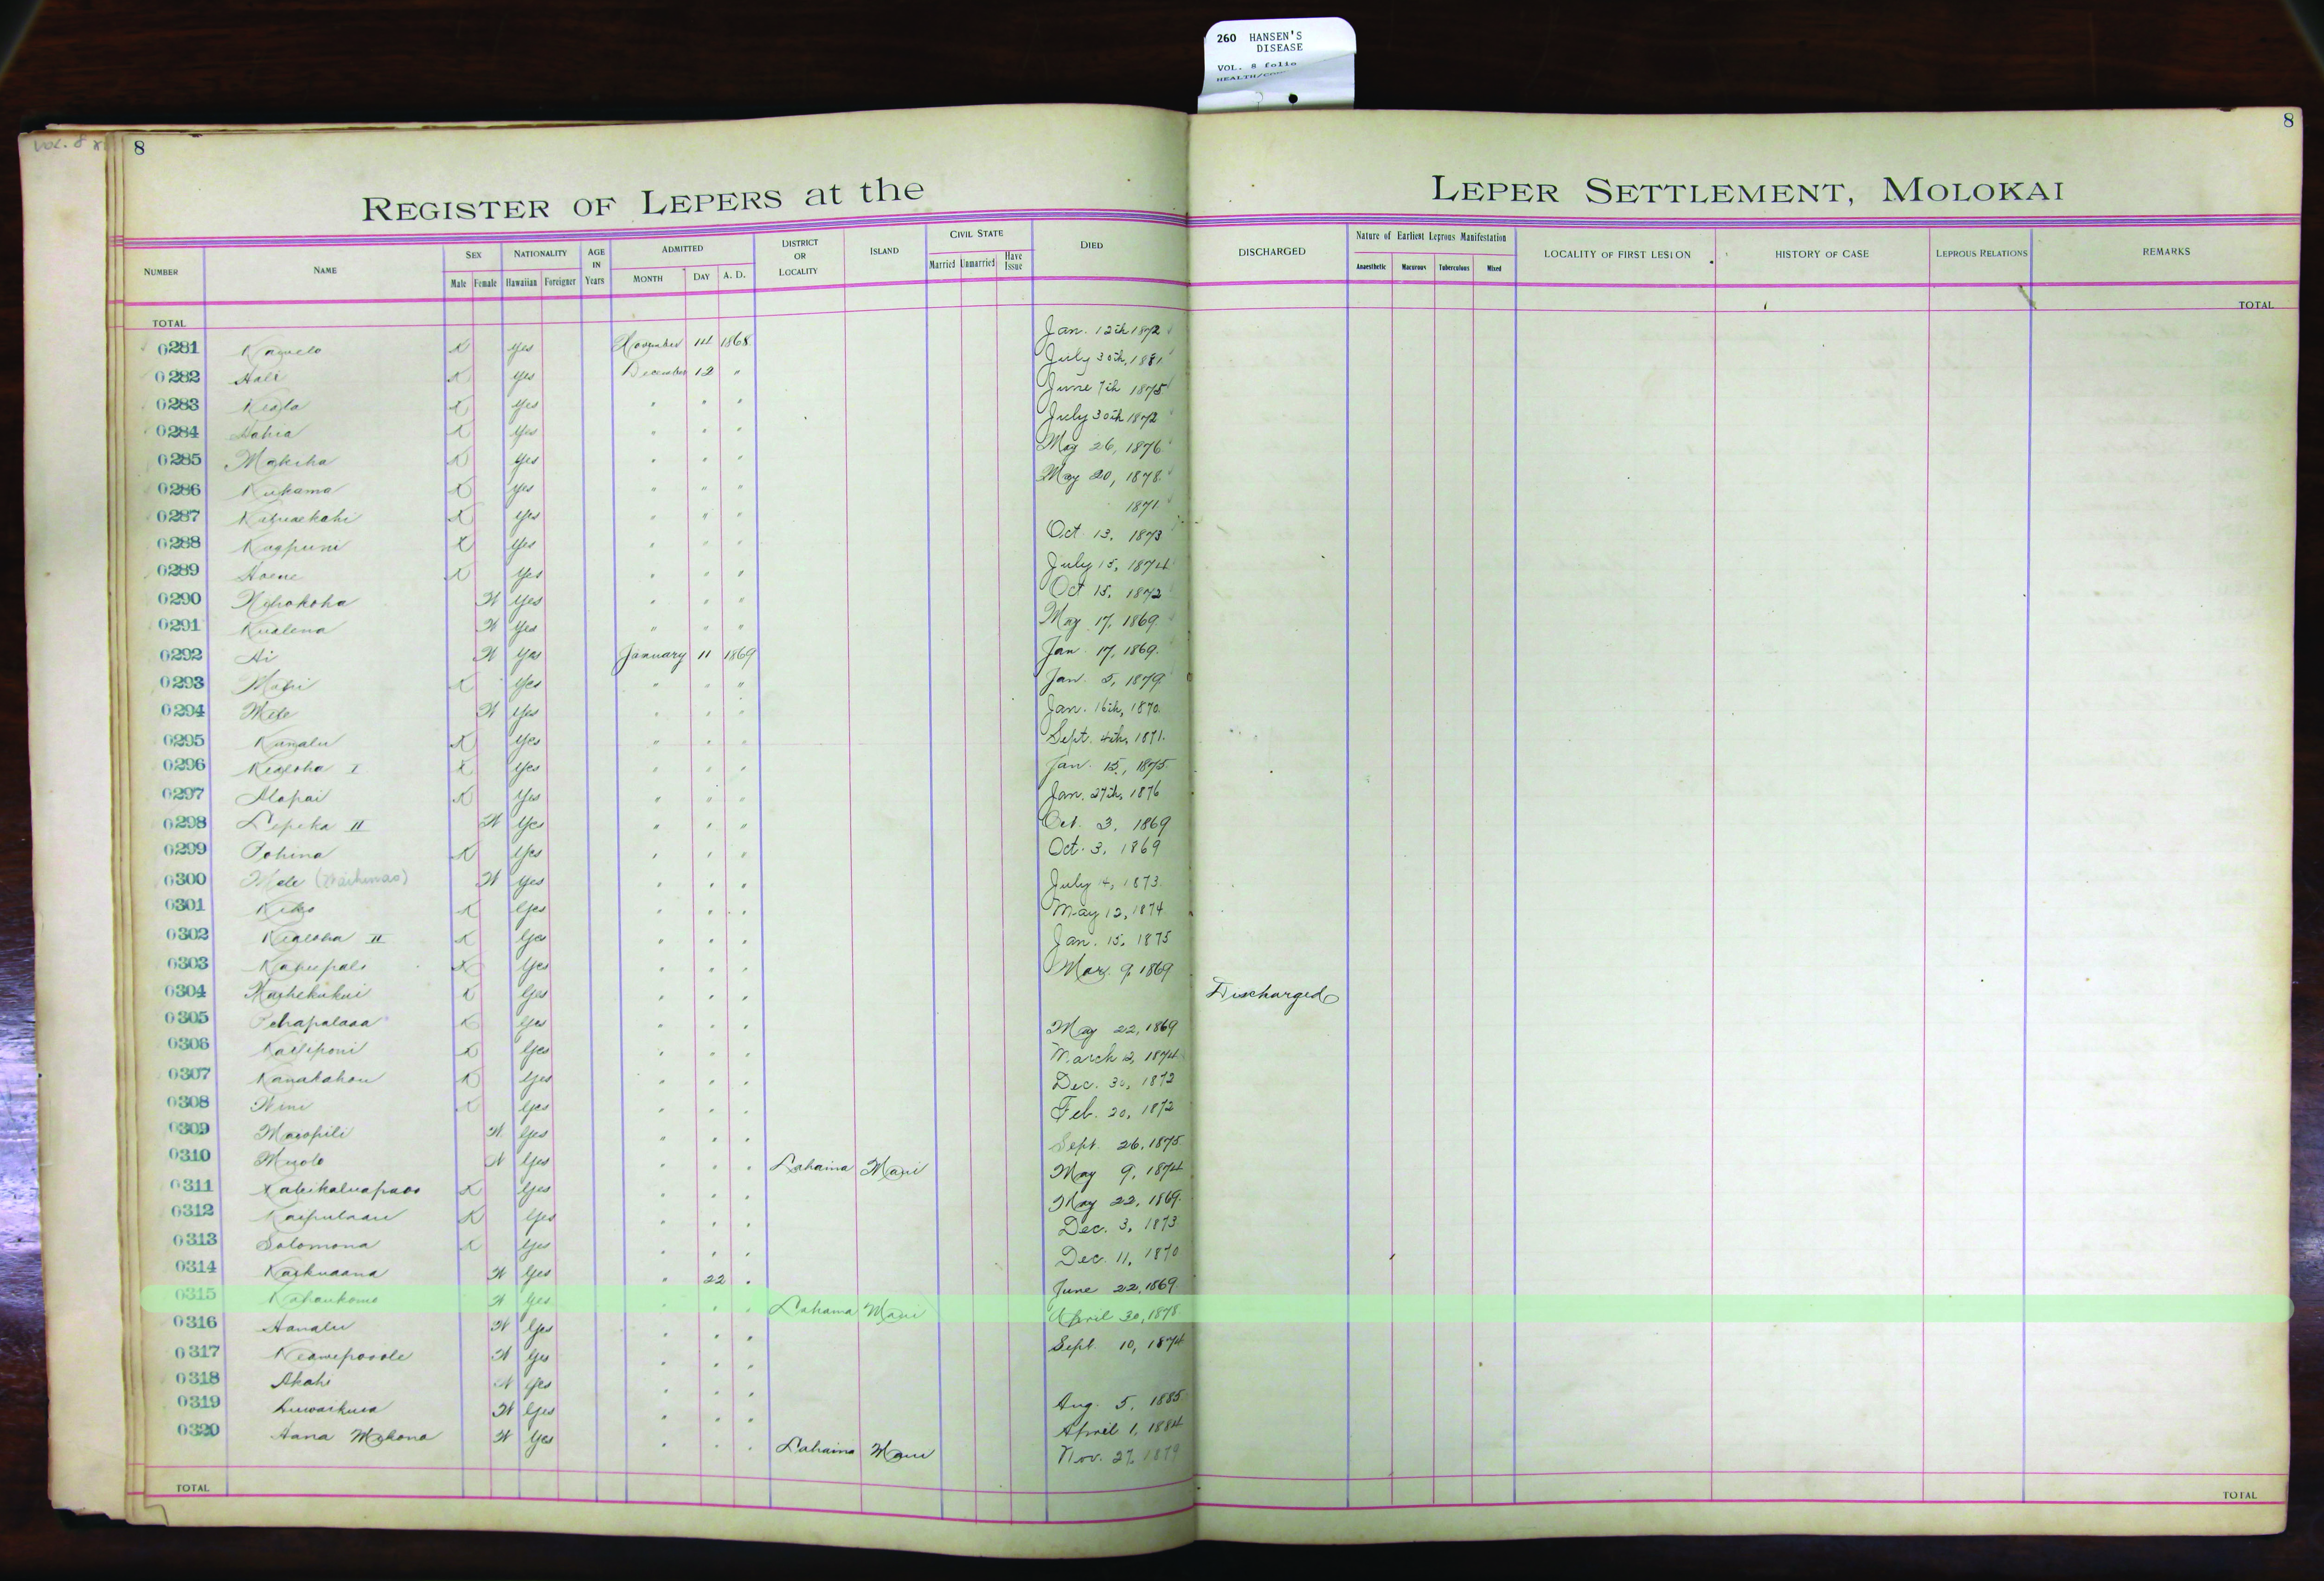 260 HANSEN'S
DISEASE
VOL. 8 folio
VOL. 8
8
8
REGISTER OF LEPERS at the LEPER SETTLEMENT, MOLOKAI
NUMBER NAME SEX NATIONALITY AGE IN Years ADMITTED DISTRICT OR LOCALITY ISLAND CIVIL STATE DIED DISCHARGED Nature of Earliest Leprous Manifestation LOCALITY OF FIRST LESION HISTORY OF CASE LEPROUS RELATIONS REMARKS
Male Female Hawaiian Foreigner MONTH DAY A. D. Married Unmarried Have Issue Anaesthetic Macurous Tuberculous Mixed
TOTAL TOTAL
0281 K Yes November 14 1868 Jan. 12th 1872
0282 Hali K Yes December 12 " July 30th, 1881
0283 Keala K Yes " " " June 7th 1875
0284 K Yes " " " July 30th 1872
0285 Makeha K Yes " " " May 26, 1876
0286 Kukama K Yes " " " May 20, 1878
0287 K Yes " " " 1871
0288 Kaapuni K Yes " " " Oct. 13, 1873
0289 Hoene K Yes " " " July 15, 1874
0290 W Yes " " " Oct 15, 1872
0291 Kualena W Yes " " " May 17, 1869
0292 Ai W Yes January 11 1869 Jan. 17, 1869
0293 K Yes " " " Jan. 5, 1879
0294 Mele W Yes " " " Jan. 16th, 1870
0295 K Yes " " " Sept. 4th, 1871
0296 Kealoha I K Yes " " " Jan. 15, 1875
0297 Alapai K Yes " " " Jan. 27th, 1876
0298 Lepeka II W Yes " " " Oct. 3, 1869
0299 Pohina K Yes " " " Oct. 3, 1869
0300 Mele W Yes " " " July 4, 1873
0301 K Yes " " " May 12, 1874
0302 Kealoha II K Yes " " " Jan. 15, 1875
0303 K Yes " " " Mar. 9, 1869
0304 K Yes " " " Discharged
0305 Pehapalaoa K Yes " " " May 22, 1869
0306 Kailiponi K Yes " " " March 12, 1874
0307 Kanakahou K Yes " " " Dec. 30, 1872
0308 K Yes " " " Feb. 20, 1872
0309 Maoopili W Yes " " " Sept. 26, 1875
0310 W Yes " " " Lahaina Maui May 9, 1874
0311 K Yes " " " May 22, 1869
0312 K Yes " " " Dec. 3, 1873
0313 Solomona K Yes " " " Dec. 11, 1870
0314 Kaikuaana W Yes " 22 " June 22, 1869
0315 Kahaukomo W Yes " " " Lahaina Maui April 30, 1878
0316 Hanalu W Yes " " " Sept. 10, 1874
0317 Keawepooole W Yes " " "
0318 Akahi W Yes " " " Aug. 5, 1885
0319 W Yes " " " April 1, 1884
0320 Hana W Yes " " " Lahaina Maui Nov. 27, 1879
TOTAL TOTAL